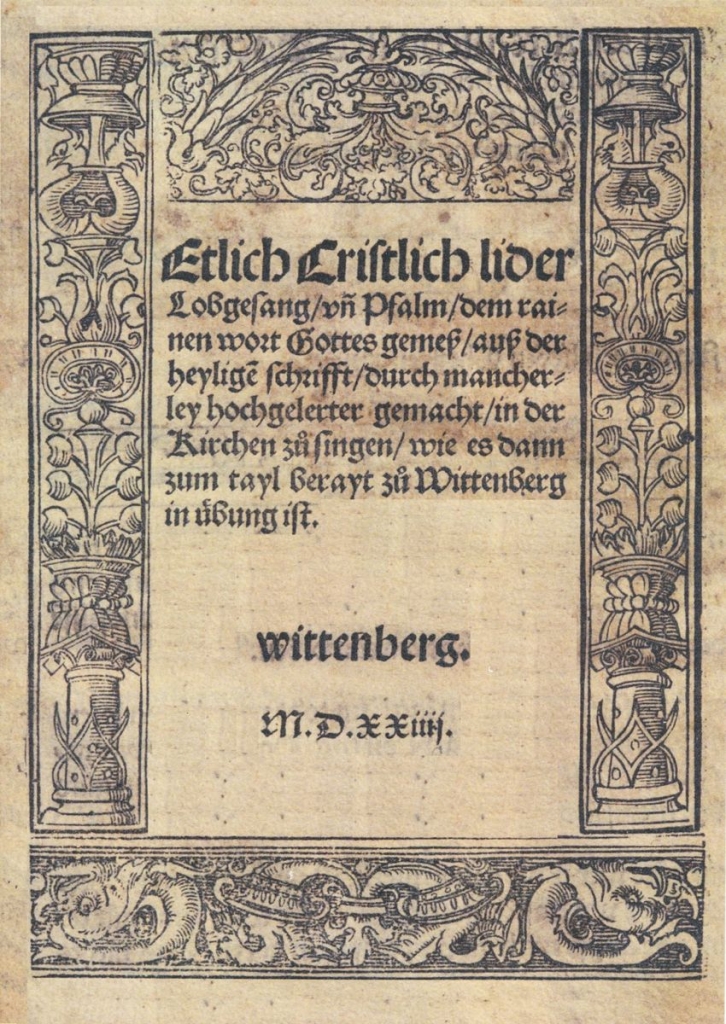 Etlich Cristlich lider
Lobgesang/vñ Psalm/dem rai⸗
nen wort Gottes gemeß/auß der
heyligē schrifft/durch mancher⸗
ley hochgelerter gemacht/in der
Kirchen zů singen/ wie es dann
zum tayl berayt zů Wittenberg
in übung ist.
wittenberg.
M.D.XXiiij.